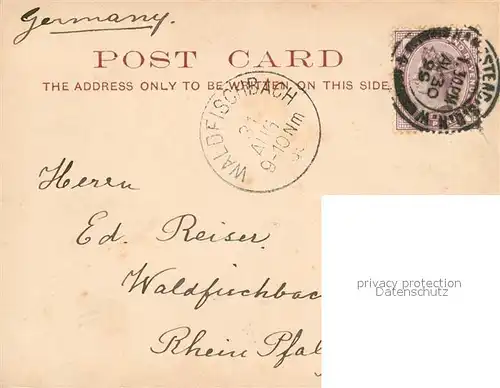 Germany.
POST CARD
THE ADDRESS ONLY TO BE WRITTEN ON THIS SIDE.
WALDFISCHBACH
31
AUG
9-10Nm
Herren
Ed. Reiser.
Waldfischbac
Rhein Pfalz
privacy protection
Datenschutz